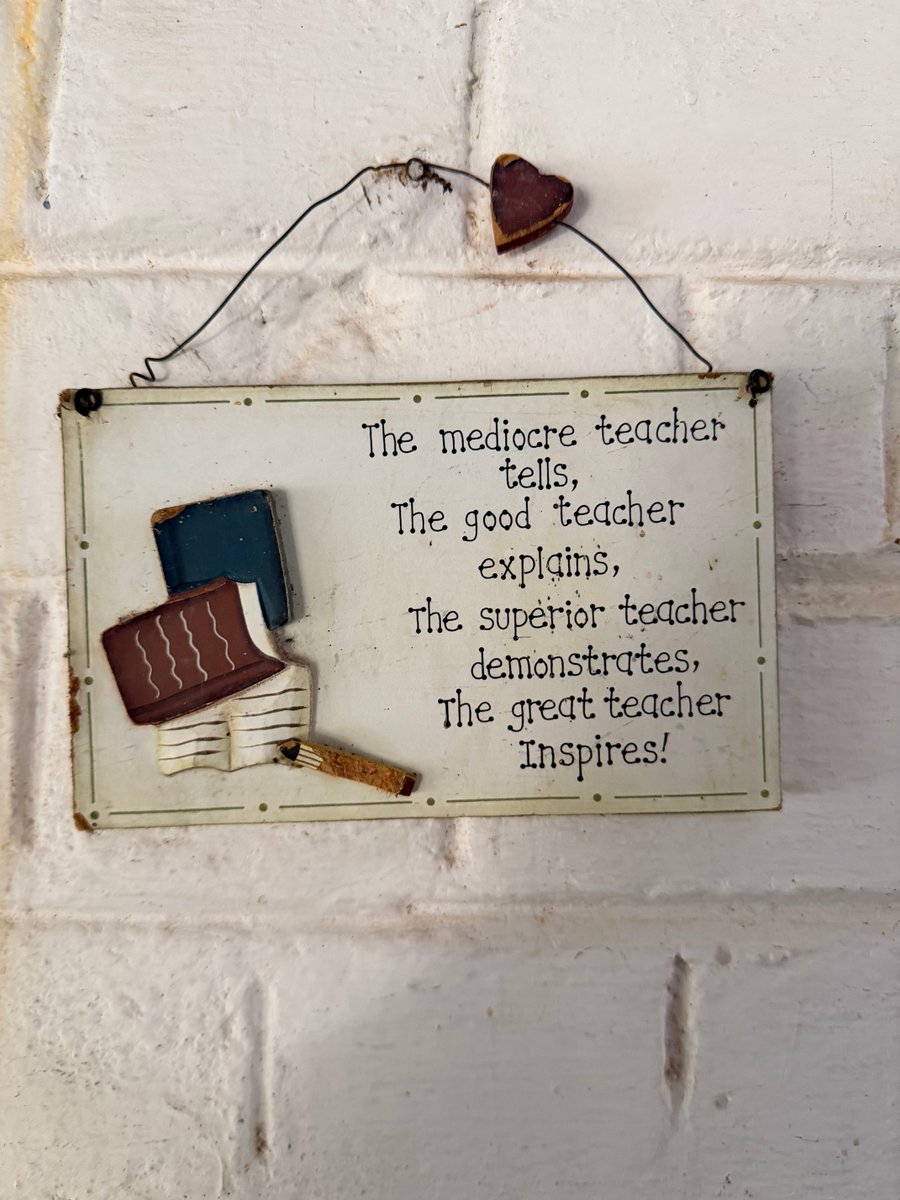 The mediocre teacher
tells,
The good teacher
explains,
The superior teacher
demonstrates,
The great teacher
Inspires!